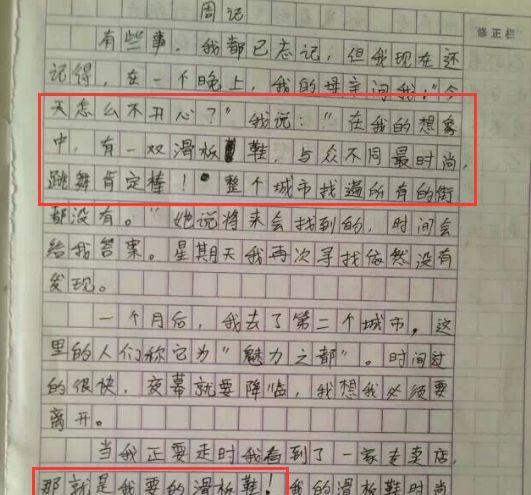 周记
修正栏
有些事，我都已忘记，但我现在还
记得，在一个晚上，我的母亲问我："今
天怎么不开心？"我说："在我的想象
中，有一双滑板鞋，与众不同最时尚，
跳舞肯定棒！"整个城市找遍所有的街
都没有。"她说将来会找到的，时间会
给我答案。星期天我再次寻找依然没有
发现。
一个月后，我去了第二个城市。这
里的人们称它为"魅力之都"。时间过
的很快，夜幕就要降临，我想我必须要
离开。
当我正要走时我看到了一家专卖店，
那就是我要的滑板鞋！我的滑板鞋时尚